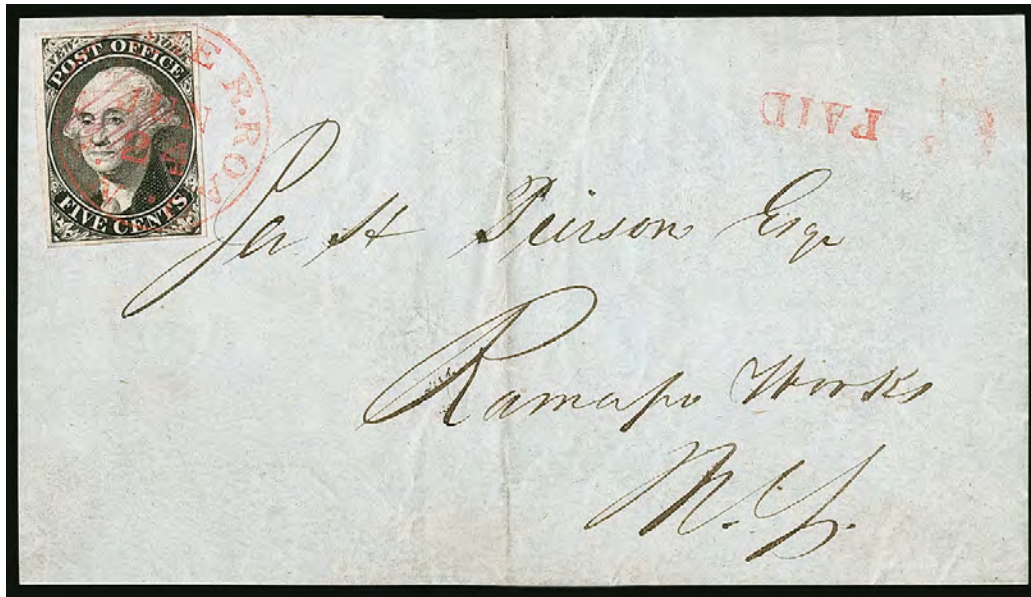 POST OFFICE
FIVE CENTS
E R.ROA
JUN
2
N.Y.
PAID
5
Ja H Peirson Esqr
Ramapo Works
N.Y.